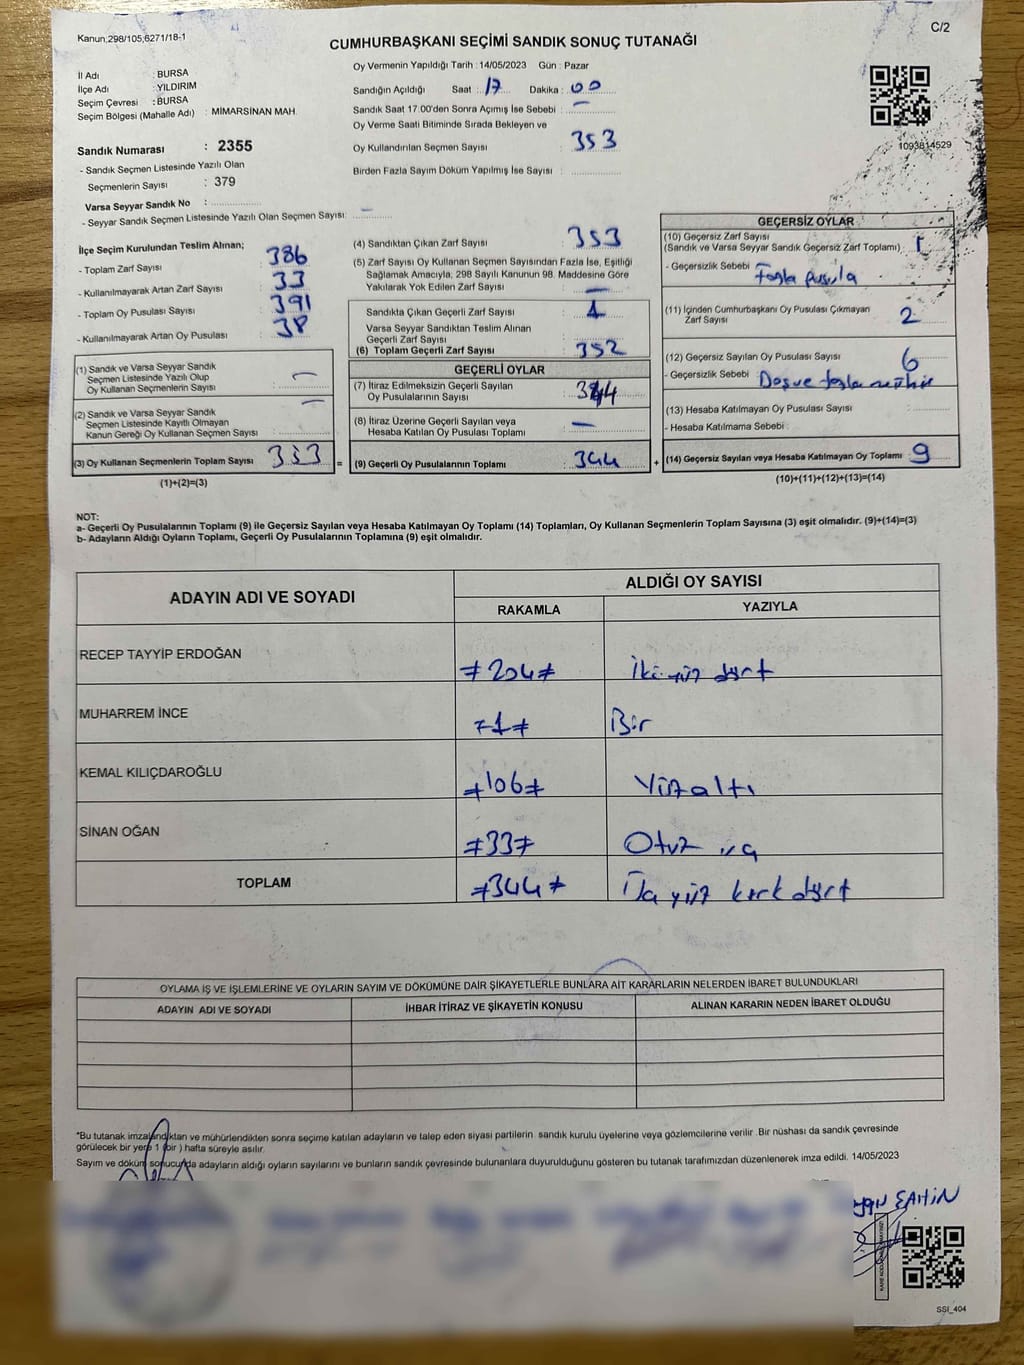 Kanun;298/105,6271/18-1
C/2
CUMHURBAŞKANI SEÇİMİ SANDIK SONUÇ TUTANAĞI
İl Adı : BURSA
İlçe Adı : YILDIRIM
Seçim Çevresi : BURSA
Seçim Bölgesi (Mahalle Adı) : MİMARSİNAN MAH.
Sandık Numarası : 2355
- Sandık Seçmen Listesinde Yazılı Olan
Seçmenlerin Sayısı : 379
Varsa Seyyar Sandık No :
- Seyyar Sandık Seçmen Listesinde Yazılı Olan Seçmen Sayısı: –
Oy Vermenin Yapıldığı Tarih : 14/05/2023 Gün : Pazar
Sandığın Açıldığı Saat : 17 Dakika : 00
Sandık Saat 17:00'den Sonra Açımış İse Sebebi : –
Oy Verme Saati Bitiminde Sırada Bekleyen ve
Oy Kullandırılan Seçmen Sayısı : 353
Birden Fazla Sayım Döküm Yapılmış İse Sayısı :
1093814529
İlçe Seçim Kurulundan Teslim Alınan;
- Toplam Zarf Sayısı : 386
- Kullanılmayarak Artan Zarf Sayısı : 33
- Toplam Oy Pusulası Sayısı : 391
- Kullanılmayarak Artan Oy Pusulası : 38
(1) Sandık ve Varsa Seyyar Sandık
Seçmen Listesinde Yazılı Olup
Oy Kullanan Seçmenlerin Sayısı : –
(2) Sandık ve Varsa Seyyar Sandık
Seçmen Listesinde Kayıtlı Olmayan
Kanun Gereği Oy Kullanan Seçmen Sayısı : –
(3) Oy Kullanan Seçmenlerin Toplam Sayısı : 353 =
(1)+(2)=(3)
(4) Sandıktan Çıkan Zarf Sayısı : 353
(5) Zarf Sayısı Oy Kullanan Seçmen Sayısından Fazla İse, Eşitliği
Sağlamak Amacıyla, 298 Sayılı Kanunun 98. Maddesine Göre
Yakılarak Yok Edilen Zarf Sayısı : –
Sandıkta Çıkan Geçerli Zarf Sayısı : 1
Varsa Seyyar Sandıktan Teslim Alınan
Geçerli Zarf Sayısı :
(6) Toplam Geçerli Zarf Sayısı : 352
GEÇERLİ OYLAR
(7) İtiraz Edilmeksizin Geçerli Sayılan
Oy Pusulalarının Sayısı : 344
(8) İtiraz Üzerine Geçerli Sayılan veya
Hesaba Katılan Oy Pusulası Toplamı : –
(9) Geçerli Oy Pusulalarının Toplamı : 344 +
GEÇERSİZ OYLAR
(10) Geçersiz Zarf Sayısı
(Sandık ve Varsa Seyyar Sandık Geçersiz Zarf Toplamı) : 1
- Geçersizlik Sebebi : Fazla pusula
(11) İçinden Cumhurbaşkanı Oy Pusulası Çıkmayan
Zarf Sayısı : 2
(12) Geçersiz Sayılan Oy Pusulası Sayısı : 6
- Geçersizlik Sebebi : Boş ve fazla mühür
(13) Hesaba Katılmayan Oy Pusulası Sayısı :
- Hesaba Katılmama Sebebi :
(14) Geçersiz Sayılan veya Hesaba Katılmayan Oy Toplamı : 9
(10)+(11)+(12)+(13)=(14)
NOT:
a- Geçerli Oy Pusulalarının Toplamı (9) ile Geçersiz Sayılan veya Hesaba Katılmayan Oy Toplamı (14) Toplamları, Oy Kullanan Seçmenlerin Toplam Sayısına (3) eşit olmalıdır. (9)+(14)=(3)
b- Adayların Aldığı Oyların Toplamı, Geçerli Oy Pusulalarının Toplamına (9) eşit olmalıdır.
ADAYIN ADI VE SOYADI
ALDIĞI OY SAYISI
RAKAMLA YAZIYLA
RECEP TAYYİP ERDOĞAN ≠204≠ İkiyüz dört
MUHARREM İNCE ≠1≠ Bir
KEMAL KILIÇDAROĞLU ≠106≠ Yüzaltı
SİNAN OĞAN ≠33≠ Otuz üç
TOPLAM ≠344≠ Üç yüz kırk dört
OYLAMA İŞ VE İŞLEMLERİNE VE OYLARIN SAYIM VE DÖKÜMÜNE DAİR ŞİKAYETLERLE BUNLARA AİT KARARLARIN NELERDEN İBARET BULUNDUKLARI
ADAYIN ADI VE SOYADI İHBAR İTİRAZ VE ŞİKAYETİN KONUSU ALINAN KARARIN NEDEN İBARET OLDUĞU
*Bu tutanak imzalandıktan ve mühürlendikten sonra seçime katılan adayların ve talep eden siyasi partilerin sandık kurulu üyelerine veya gözlemcilerine verilir .Bir nüshası da sandık çevresinde
görülecek bir yere 1 (bir ) hafta süreyle asılır.
Sayım ve döküm sonucunda adayların aldığı oyların sayılarını ve bunların sandık çevresinde bulunanlara duyurulduğunu gösteren bu tutanak tarafımızdan düzenlenerek imza edildi. 14/05/2023
ŞAHİN
SSİ_404